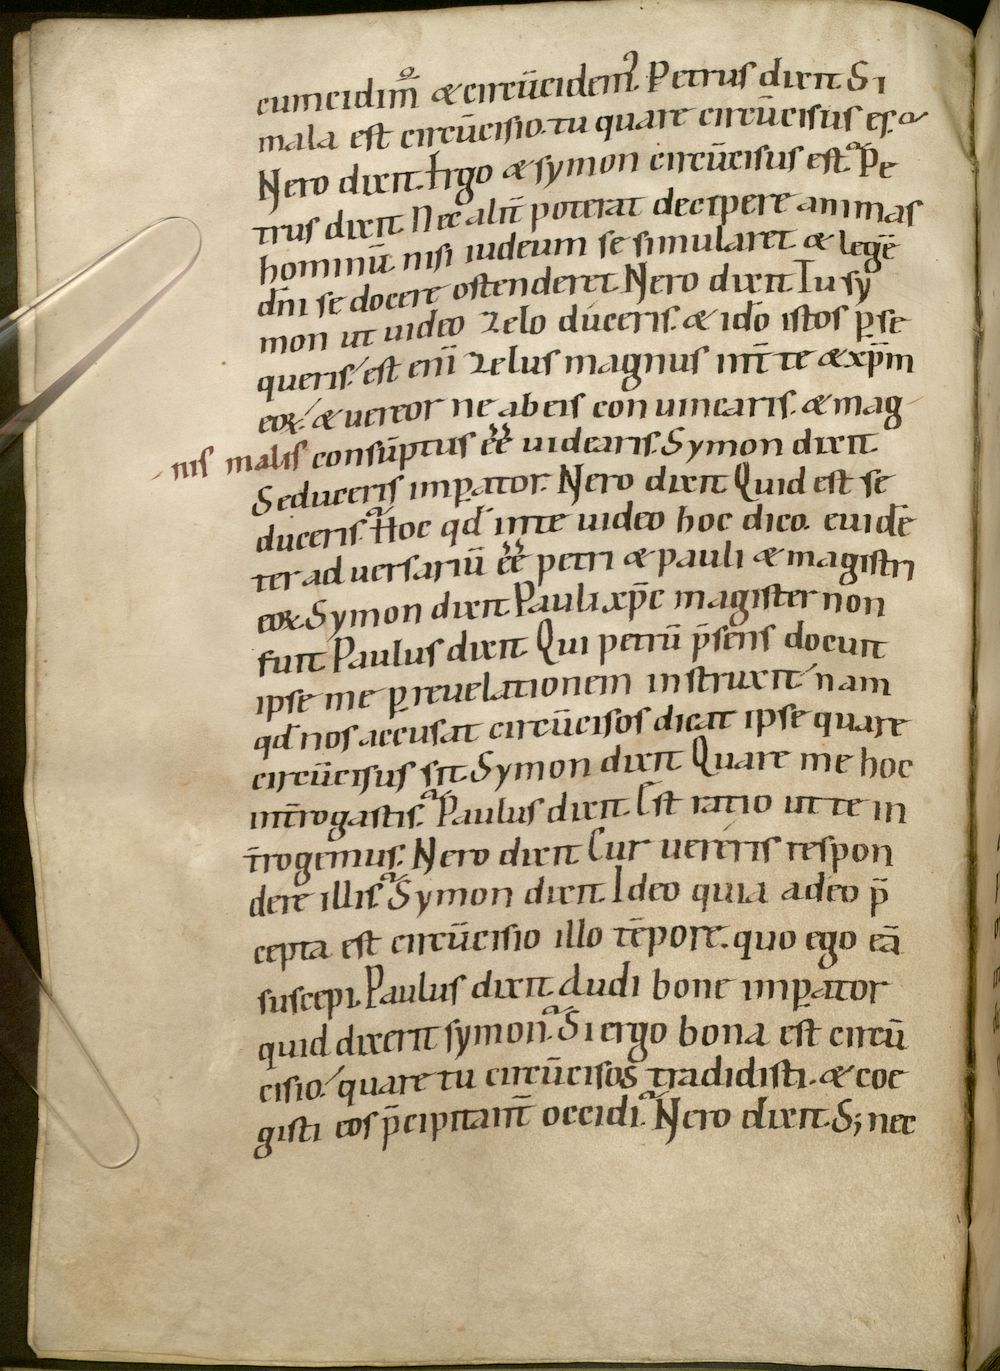 cumcidim̄ꝰ & circūcidem᷒. Petrus dixit. Si
mala est circūcisio. tu quare circūcisus es.
Nero dixit. Ergo & symon circūcisus est. Pe
trus dixit. Nec alit̄ poterat decipere animas
hominū. nisi iudeum se simularet. & legē
dn̄i se docere ostenderet. Nero dixit. Tu sy
mon ut uideo zelo duceris. & ido̅ istos ꝑse
queris. est eni̅ zelus magnus int̄ te & xp̄m
eoꝝ. & uereor ne ab eis conuincaris. & mag
nis malis consūptus ēē uidearis. Symon dixit.
Seduceris imꝑator. Nero dixit. Quid est se
duceris. Hoc qđ in te uideo hoc dico. euidē
ter aduersariū ēē petri & pauli & magistri
eoꝝ. Symon dixit. Pauli xp̄c magister non
fuit. Paulus dixit. Qui petrū p̄sens docuit
ipse me ꝑ reuelationem instruxit. nam
qđ nos accusat circūcisos dicat ipse quare
circūcisus sit. Symon dixit. Quare me hoc
int̄rogastis. Paulus dixit. Est ratio ut te in
t̄rogemus. Nero dixit. Cur uereris respon
dere illis. Symon dixit. Ideo quia a deo p̄
cepta est circūcisio illo tēpore. quo ego eā
suscepi. Paulus dixit. Audi bone imꝑator
quid dixerit symon. Si ergo bona est circū
cisio. quare tu circūcisos tradidisti. & coe
gisti eos p̄cipitant̄ occidi. Nero dixit. S; nec